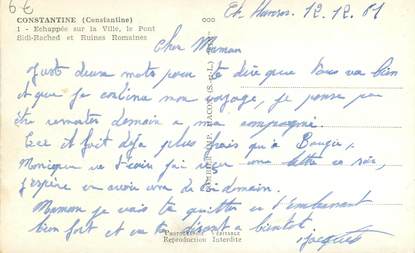 6€
CONSTANTINE (Constantine)
1 - Echappée sur la Ville, le Pont
Sidi-Rached et Ruines Romaines
12.12.61
Cher Maman
Juste deux mots pour te dire que tous va bien
et que je continu mon voyage, je pense pas
être remontés demain a ma compagnie.
Ece il fait déja plus frais qu'a Bougie,
Monique ve d'ecrir j'ai reçu une lettre ce soir,
j'espère en avoir une de toi demain.
Maman je vais te quitter en t'embrassant
bien fort et en te disant a bientot
Jacques
PHOTOGRAPHIE VÉRITABLE
Reproduction Interdite
COMBIER IMP. MACON (S.-et-L.)